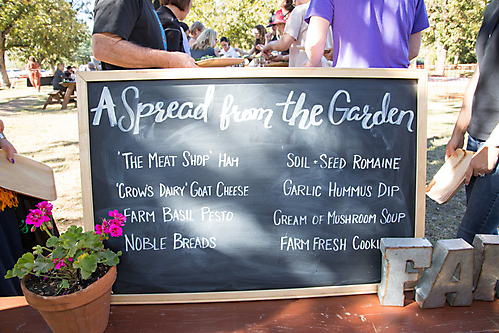 A Spread from the Garden
'The Meat Shop' Ham
'Crow's Dairy' Goat Cheese
Farm Basil Pesto
Noble Breads
Soil + Seed Romaine
Garlic Hummus Dip
Cream of Mushroom Soup
Farm Fresh Cooki
FA